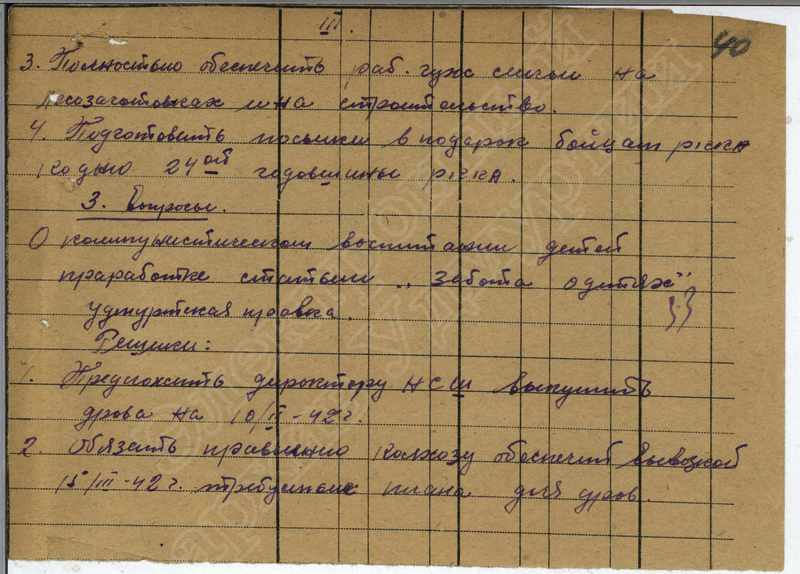 III.
40
3. Полностью обеспечить раб. гуж силой на
лесозаготовках и на строительство.
4. Подготовить посылки в подарок бойцам РККА
ко дню 24ой годовщины РККА.
3. Вопросы.
О коммунистическом воспитании детей
проработке статьи „Забота о детях"
удмуртская правда.
Решили:
1. Предложить директору НСШ выкупить
дрова на 10/II-42 г.
2. Обязать правлению колхозу обеспечит вывозкой
15/III-42 г. плана для дров.